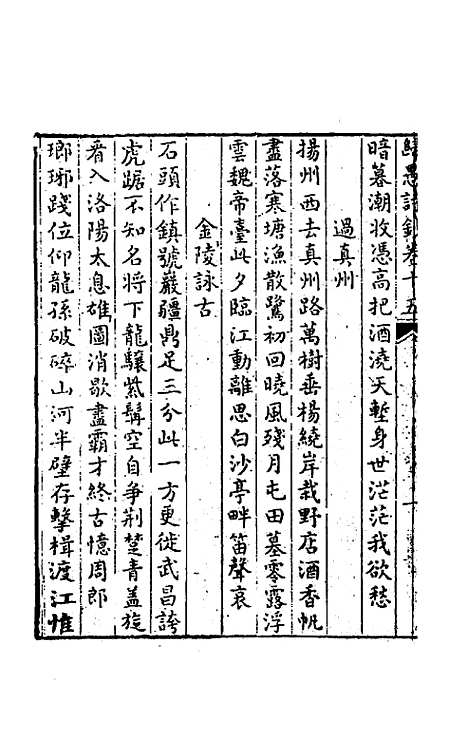 歸愚詩鈔卷十五
暗暮潮收憑高把酒澆天塹身世茫茫我欲愁
過真州
揚州西去真州路萬樹垂楊繞岸栽野店酒香帆
盡落寒塘漁散鷺初回曉風殘月屯田墓零露浮
雲魏帝臺此夕臨江動離思白沙亭畔笛聲哀
金陵詠古
石頭作鎮號巖疆鼎足三分此一方更徙武昌誇
虎踞不知名將下龍驤紫髯空自爭荆楚青蓋旋
看入洛陽太息雄圖消歇盡霸才終古憶周郎
瑯琊踐位仰龍孫破碎山河半壁存擊楫渡江惟